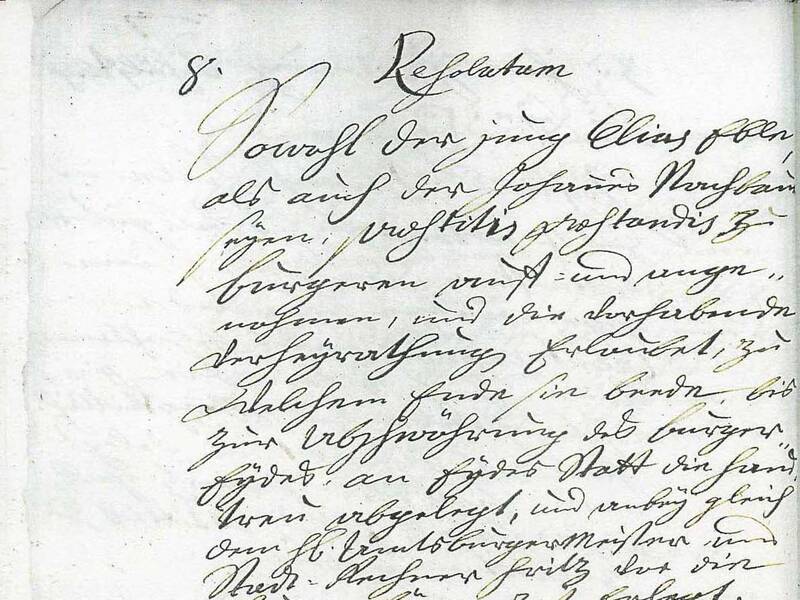 8. Resolutum
Sowohl der jung Elias Eble,
als auch der Johannes Nachbau
seyen, praestitis praestandis zu
burgeren auff- und ange„
nohmen, und die vorhabende
Verheyrathung Erlaubet, zu
Welchem Ende sie beede, bis
zur Abschwöhrung des burger„
Eydes, an Eydes Statt die Hand
treu abgelegt, und anbey gleich
dem H. AmtsburgerMeister und
Stadt-Rechner Fritz vor die